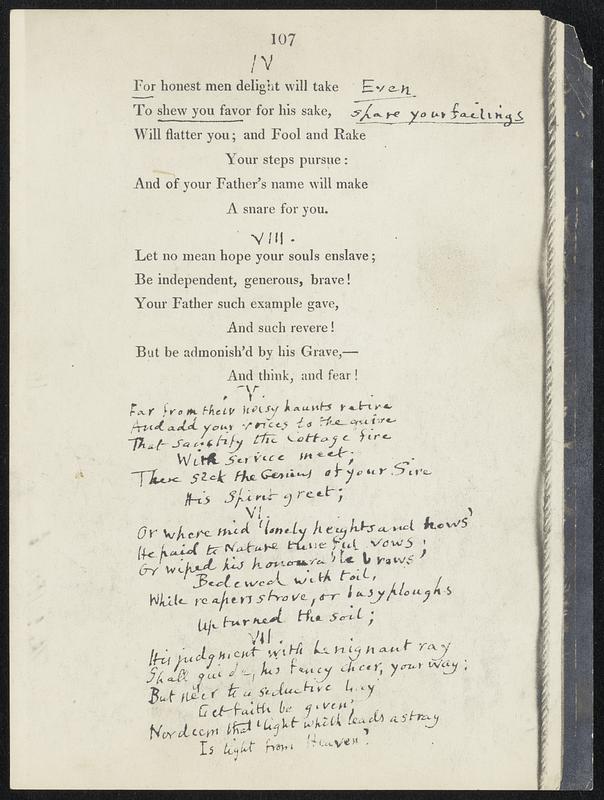 107
IV
For honest men delight will take Even
To shew you favor for his sake, spare your failings
Will flatter you; and Fool and Rake
Your steps pursue:
And of your Father's name will make
A snare for you.
VIII.
Let no mean hope your souls enslave;
Be independent, generous, brave!
Your Father such example gave,
And such revere!
But be admonish'd by his Grave,—
And think, and fear!
V
Far from their noisy haunts retire
And add your voices to the quire
That sanctify the cottage fire
With service meet;
There seek the Genius of your Sire
His Spirit greet;
VI.
Or where mid 'lonely heights and hows'
He paid to Nature tuneful vows;
Or wiped his honourable brows
Bedewed with toil,
While reapers strove, or busy ploughs
Upturned the soil;
VII.
His judgment with benignant ray
Shall guide, his fancy cheer, your way;
But ne'er to a seductive lay
Let faith be given;
Nor deem that 'light which leads astray
Is light from Heaven'.